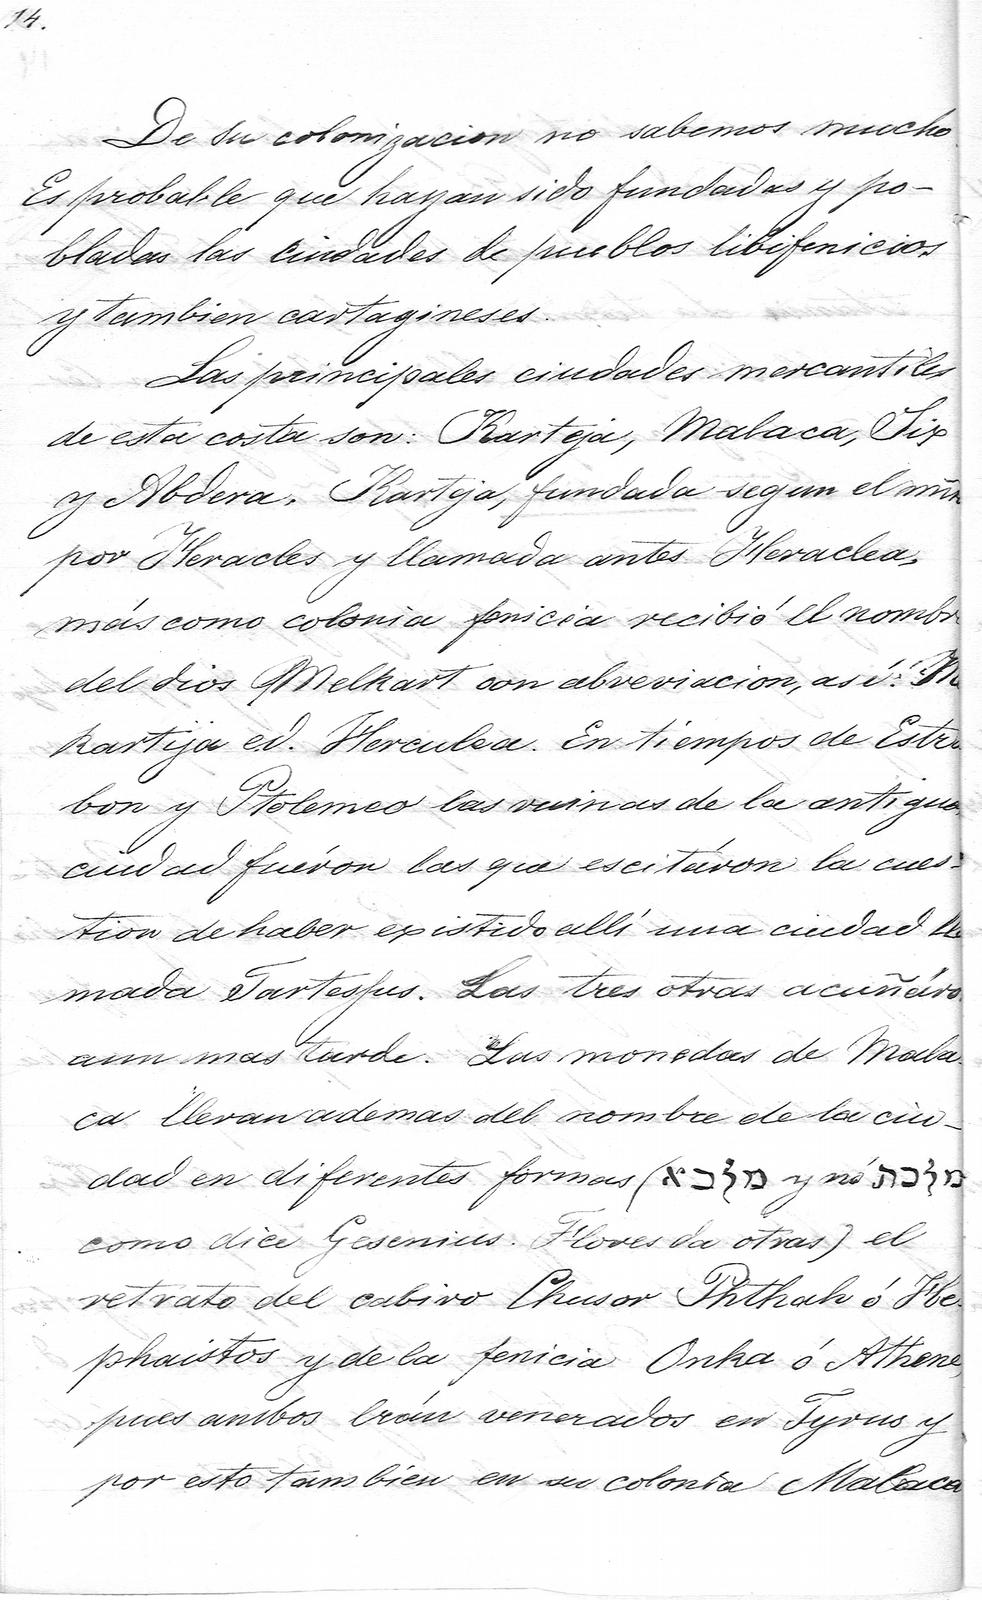 14.
De su colonizacion no sabemos mucho.
Es probable que hayan sido fundadas y po-
bladas las ciudades de pueblos libifenicios
y tambien cartagineses.
Las principales ciudades mercantiles
de esta costa son: Karteja, Malaca, Six
y Abdera. Karteja, fundada segun el
por Heracles y llamada antes Heraclea,
más como colonia fenicia recibió el nombr
del dios Melkart con abreviacion, así: M
kartija ed. Herculea. En tiempos de Estra
bon y Ptolemeo las ruinas de la antigua
ciudad fuéron las que escitáron la cues-
tion de haber existido allí una ciudad lla
mada Tartessus. Las tres otras acuñáro
aun mas tarde. Las monedas de Mala
ca llevan ademas del nombre de la ciu-
dad en diferentes formas (מלכא y nó מלכת
como dice Gesenius. Flores da otras) el
retrato del cabiro Chusor Phthah ó He-
phaistos y de la fenicia Onka ó Athene,
pues ambos erán venerados en Tyrus y
por esto tambien en su colonia Malaca